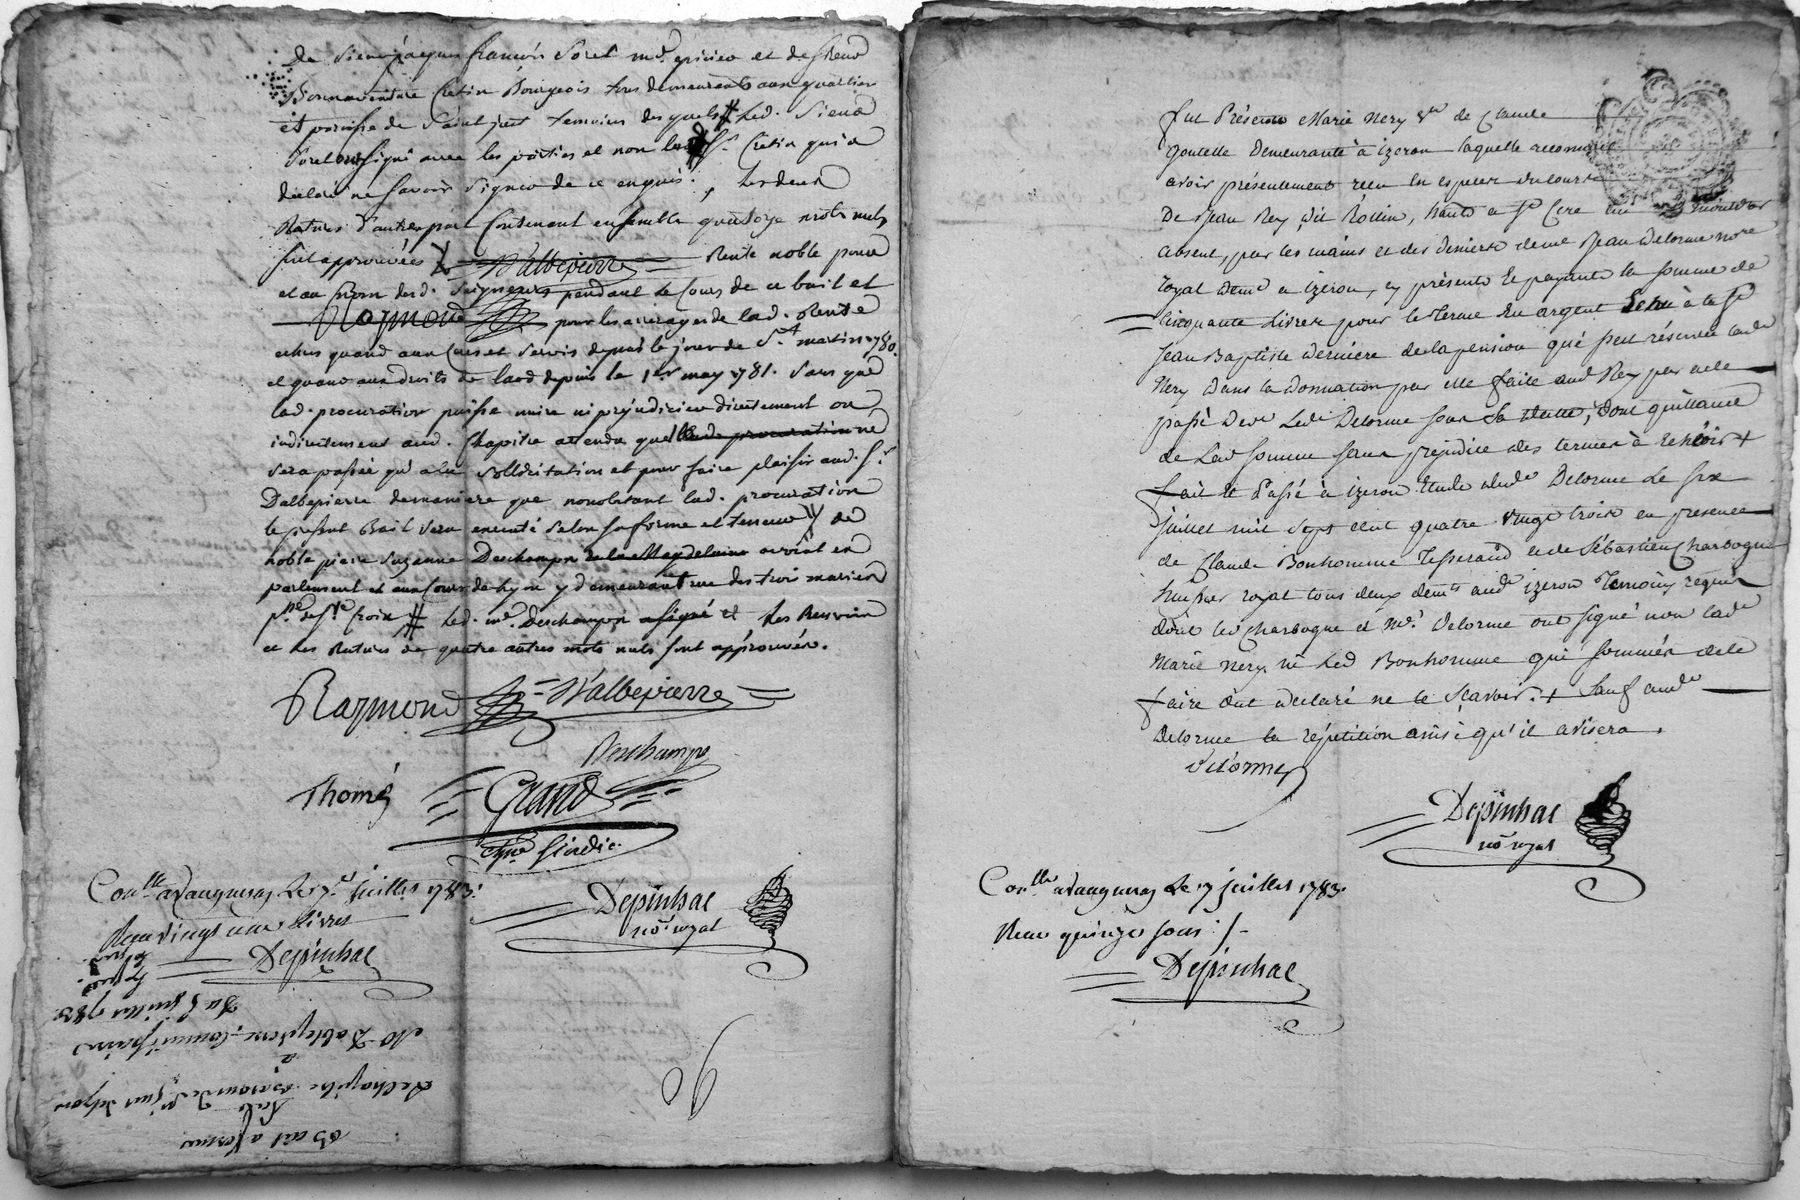 De Sieur jacques francois Sorel md. epicier et de Sieur
Bonnaventure Cretin Bourgeois tous demeurants aux quartier
et paroisse de Saint just temoins desquels # Led. Sieur
Sorel a signé avec les parties et non led. Sr. Cretin qui a
declaré ne savoir signer de ce enquis. , les deux
Ratures d'autrepart Contenant ensemble quatorze mots nuls
sont approuvées D'albepierre Rente noble pour
et au nom desd. Seigneurs pendant le Cours de ce bail et
Raymond pour les arrerages de lad. Rente
echus quand aux Cens et Servis depuis le jour de St. martin 1780.
et quand aux droits de laod depuis le 1er may 1781. Sans que
lad. procuration puisse nuire ni prejudicier directement ou
indirectement aud. Chapitre attendu que lade procuration ne
sera passée qu'a la Sollicitation et pour faire plaisir aud. Sr
Dalbepierre de maniere que nonobstant lad. procuration
le present Bail sera executé selon sa forme et teneur de
noble piere Suzanne Deschamps de la Magdelaine avocat en
parlement et aux Cours de Lyon y demeurant rue des trois maries
psse de Ste Croix # Led. me. Deschamps a signé et les Renvois
et les Ratures de quatre autres mots nuls sont approuvés.
Raymond D'albepierre
Deschamps
Thomé Grand
chne Sindic
Depinhac
no. royal
Conlle a vaugneray Le 17 juillet 1783.
Reçu vingt une Livres
Depinhac
Du 5 juillet 1783
Mr Dalbepierre, Commissaire
à
Le chapitre Baron de St just de Lyon
Bail à ferme
96
fut Présente Marie Nery ve de Claude
Goutelle Demeurante à izeron laquelle reconnait
avoir présentement reçu en especes du cours
De Jean Rey, dit Rollin,
absent, par les mains et des deniers de me Jean Delorme nore
royal demt a izeron, cy présent et payant la somme de
Cinquante Livres pour le terme en argent echu à la St
Jean Baptiste derniere de la pension que s'est réservée lade
Nery dans la Donnation par elle faite aud Rey par acte
passé devt Led Delorme sous sa datte, dont quittance
de Lad somme sans préjudice des termes à echeoir +
Fait et Passé à izeron Etude dud Delorme Le six
juillet mil sept cent quatre vingt trois en presence
de Claude Bonhomme Tisserand et de Sébastien Charbogne
huissier royal tous deux demts aud izeron Temoins requis
dont led Charbogne et Me. Delorme ont signé non lade
Marie Nery. ni Led Bonhomme qui sommés de le
faire ont déclaré ne le sçavoir. + Sauf aud
Delorme la répétition ainsi qu'il avisera.
Delorme
Depinhac
no royal
Conlle a vaugneray Le 17 juillet 1783.
Reçu quinze sous
Depinhac